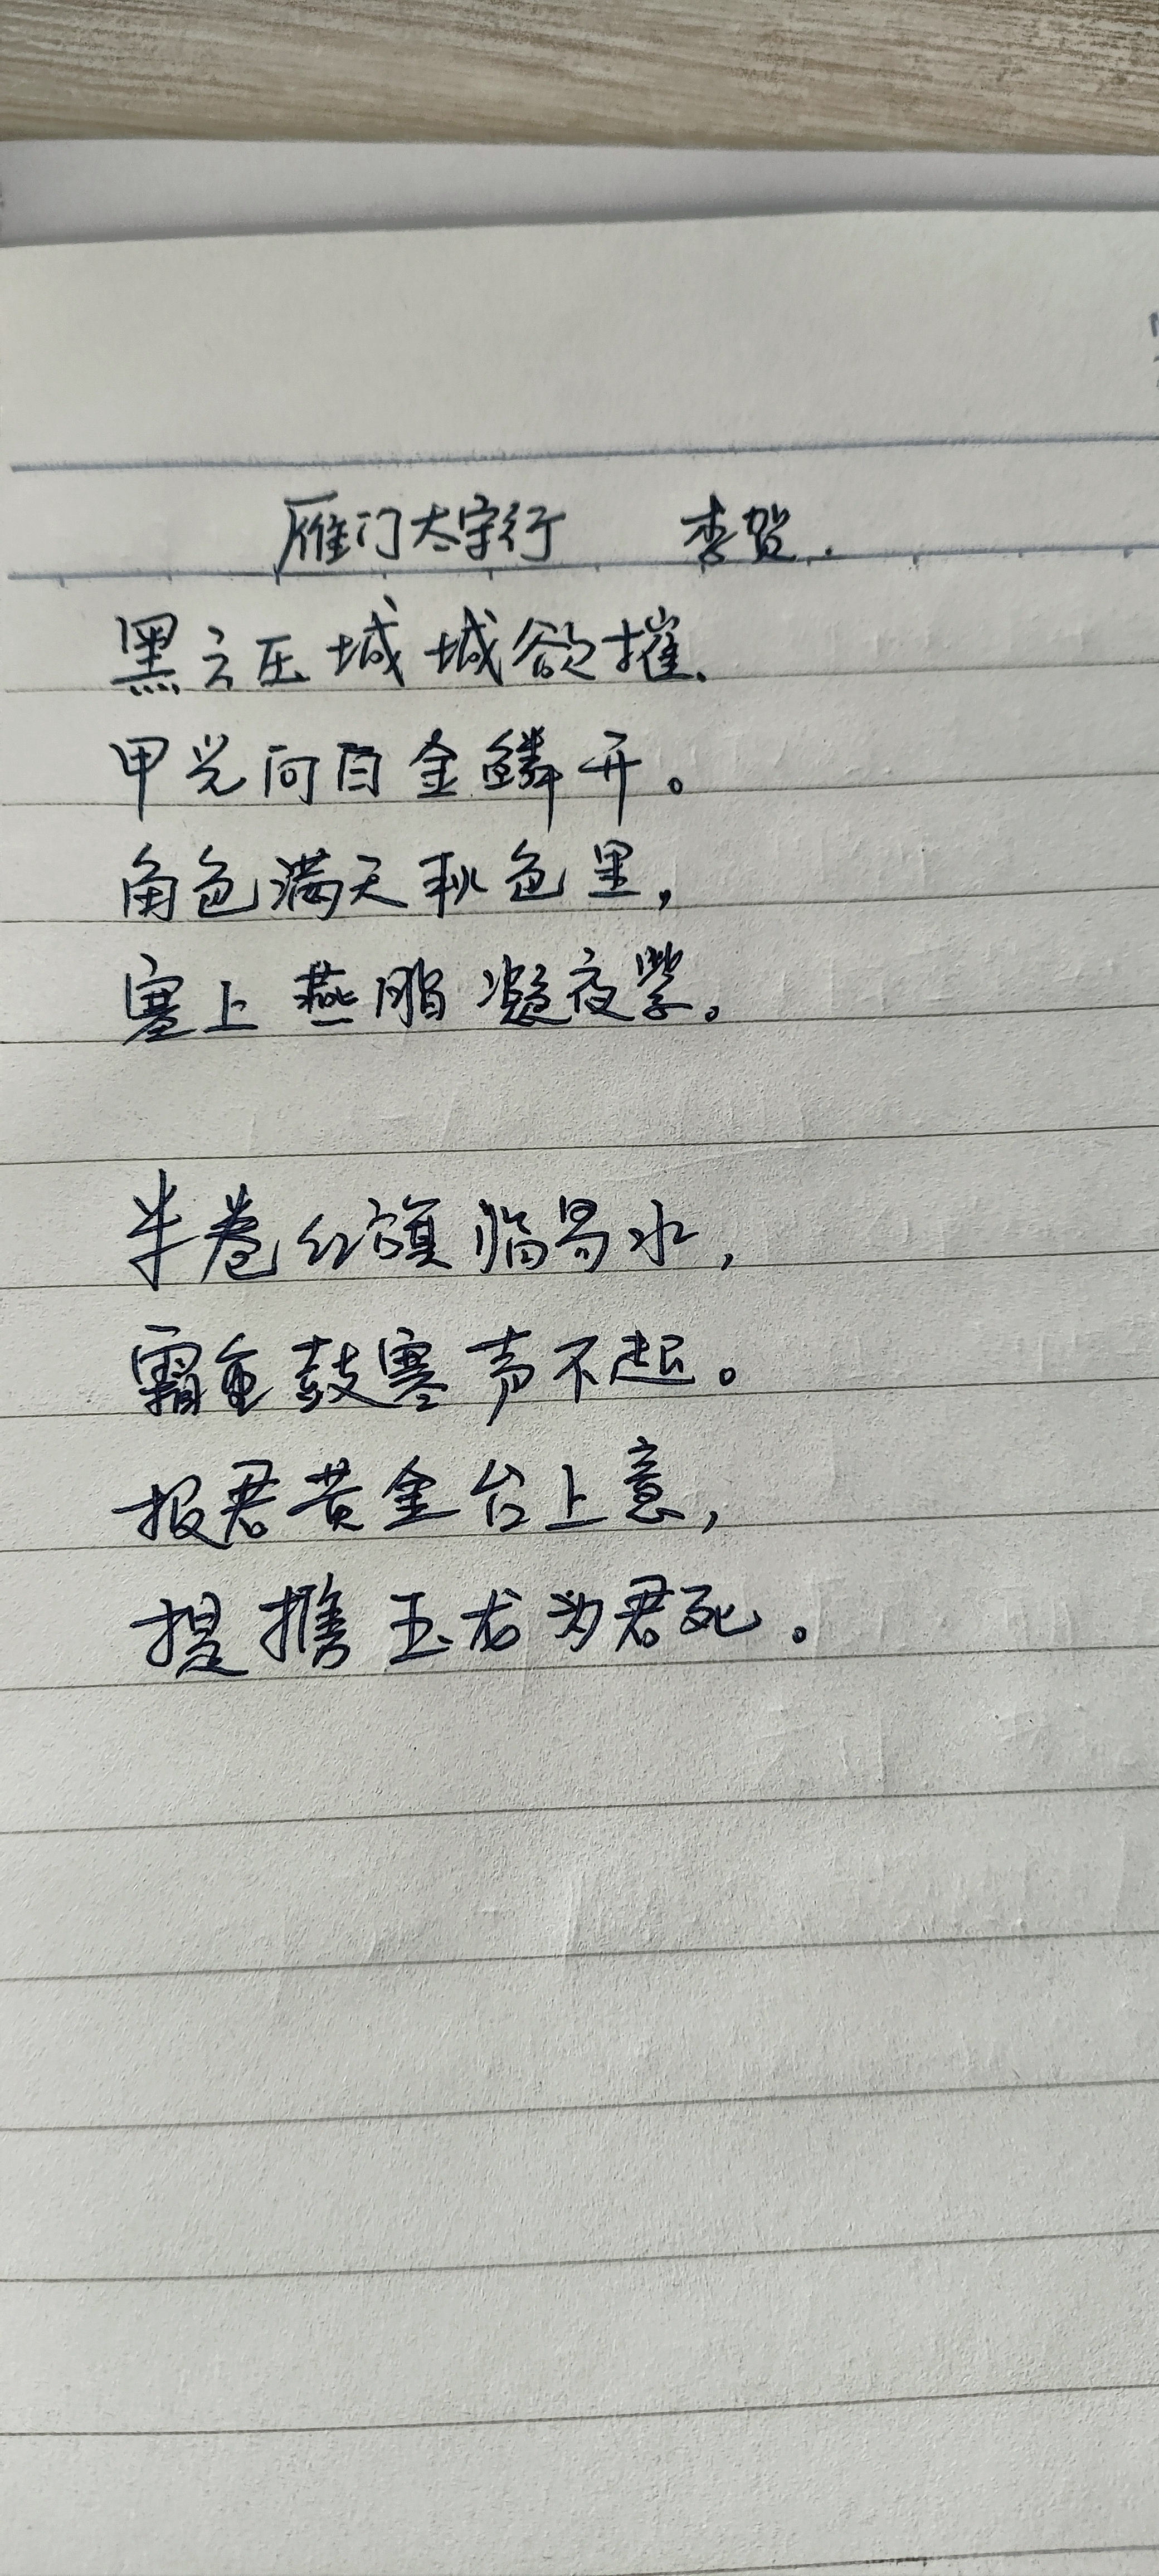 雁门太守行 李贺.
黑云压城城欲摧.
甲光向日金鳞开。
角色满天秋色里,
塞上燕脂凝夜紫。
半卷红旗临易水,
霜重鼓寒声不起。
报君黄金台上意,
提携玉龙为君死。